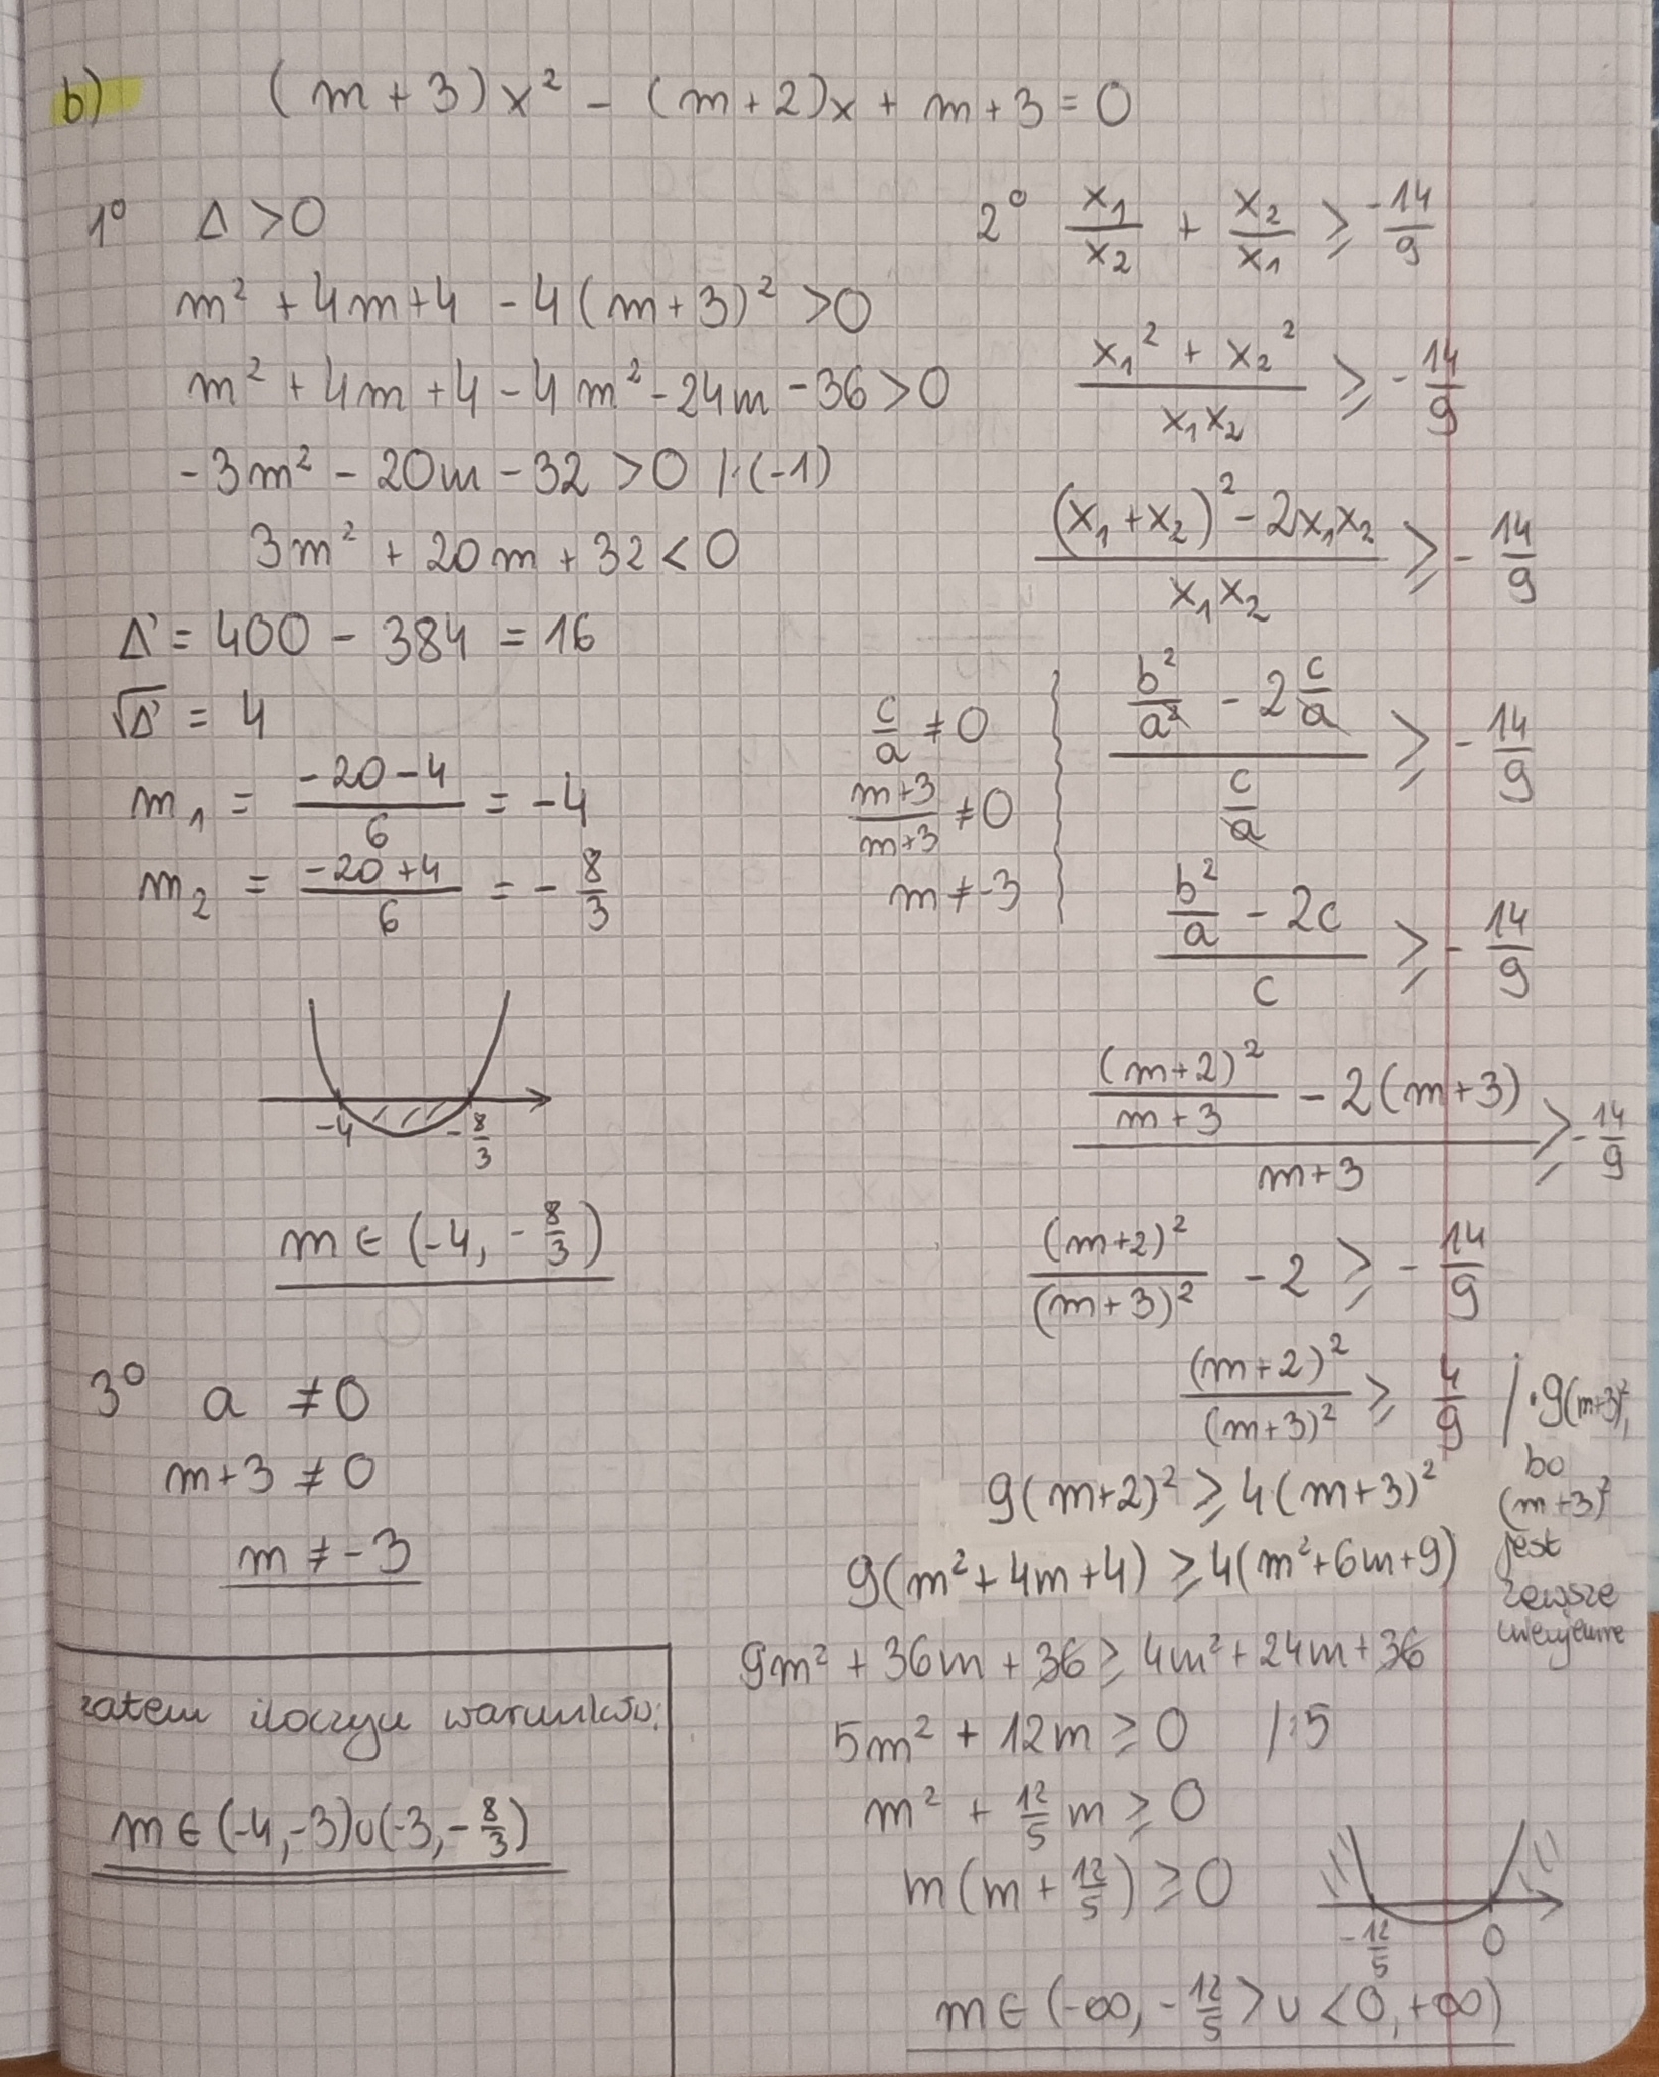 b) (m+3)x² - (m+2)x + m+3 = 0
1° Δ > 0
m² + 4m+4 - 4(m+3)² > 0
m² + 4m + 4 - 4m² - 24m - 36 > 0
-3m² - 20m - 32 > 0 /·(-1)
3m² + 20m + 32 < 0
Δ' = 400 - 384 = 16
√Δ' = 4
m₁ = (-20-4)/6 = -4
m₂ = (-20+4)/6 = -8/3
-4 -8/3
m ∈ (-4, -8/3)
3° a ≠ 0
m+3 ≠ 0
m ≠ -3
zatem iloczyn warunków:
m ∈ (-4,-3)∪(-3,-8/3)
2° x₁/x₂ + x₂/x₁ ⩾ -14/9
(x₁² + x₂²)/(x₁x₂) ⩾ -14/9
((x₁+x₂)² - 2x₁x₂)/(x₁x₂) ⩾ -14/9
c/a ≠ 0
(m+3)/(m+3) ≠ 0
m ≠ -3
(b²/a² - 2c/a)/(c/a) ⩾ -14/9
(b²/a - 2c)/c ⩾ -14/9
((m+2)²/(m+3) - 2(m+3))/(m+3) ⩾ -14/9
(m+2)²/(m+3)² - 2 ⩾ -14/9
(m+2)²/(m+3)² ⩾ 4/9 /·9(m+3)²,
bo
(m+3)²
jest
zawsze
nieujemne
9(m+2)² ⩾ 4(m+3)²
9(m²+4m+4) ⩾ 4(m²+6m+9)
9m² + 36m + 36 ⩾ 4m² + 24m + 36
5m² + 12m ⩾ 0 /:5
m² + 12/5 m ⩾ 0
m(m + 12/5) ⩾ 0
-12/5 0
m ∈ (-∞, -12/5> ∪ <0, +∞)